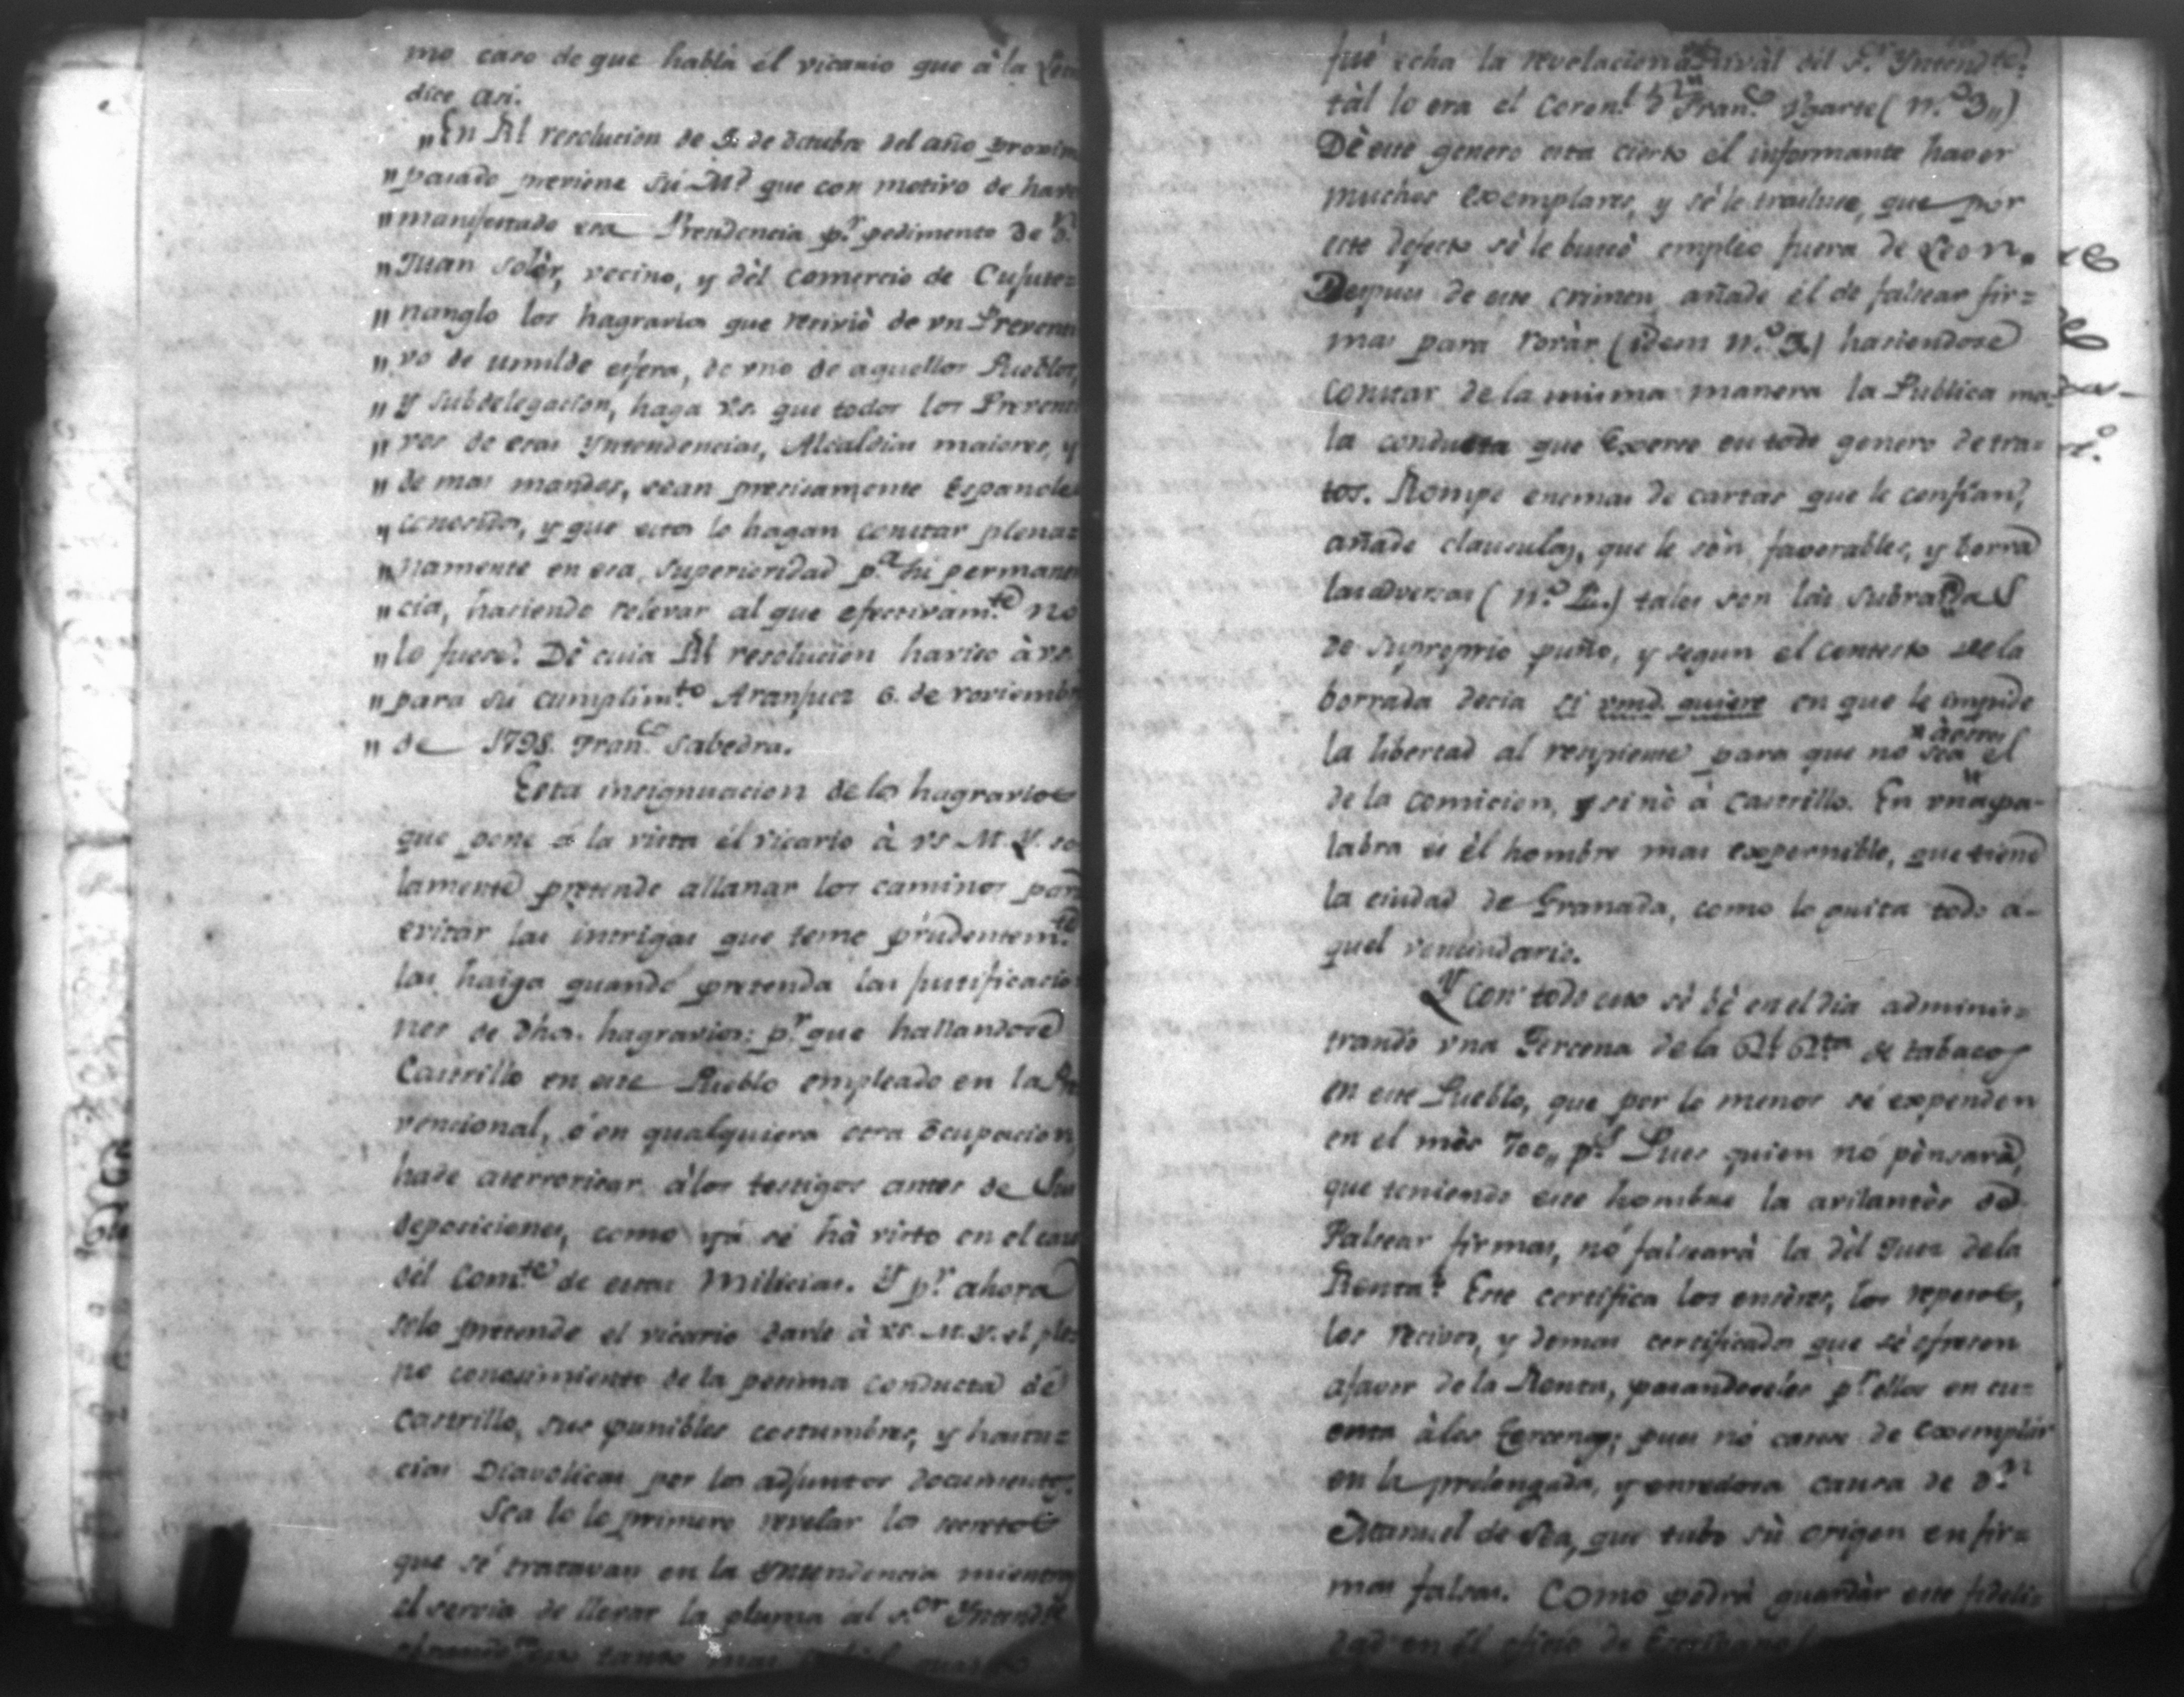 mo caso de que habla él vicario que à la Letra
dice asi.
„En Rl resolucion de 5. de octubre del año proxim
„pasado previene Sú M.d que con motivo de haver
„manifestado esa Presidencia p.r pedimento de D.n
„Juan Solèr, vecino, y dèl comercio de Cujute=
„nanglo los hagravios que recivió de vn Preventi
„vo de umilde esfera, de vno de aquellos Pueblos,
„y Subdelegacion, haga vs. que todos los Preventi
„vos de esas Yntendencias, Alcaldias maiores, y
„de mas mandos, sean precisamente Españoles
„conosidos, y que estos lo hagan constar plena=
„riamente en esa Superioridad p.a su permanen
„cia, haciendo relevar al que efectivam.te no
„lo fuese. Dè cuia Rl resolucion haviso à vs.
„para sú cumplim.to Aranjuez 6. de noviembre
„de 1798. Fran.co Sabedra.
Esta insignuacion de los hagravios
que pone à la vista él vicario à vs. M. Y. so
lamente pretende allanar los caminos para
evitar las intrigas que teme prúdentem.te
las haiga quando pretenda las justificacio
nes de dhos. hagravios: p.r que hallandose
Castrillo en este Pueblo empleado en la Pre
vencional, ó en qualquiera otra òcupacion,
hade aterrorisar àlos testigos antes de Sus
deposiciones, como yá se hà visto en el caso
dèl Com.te de estas Milicias. Y p.r ahora
solo pretende el vicario darle à vs. M. Y. el ple
no conosimiento de la pesima conducta de
Castrillo, sus punibles costumbres, y hastu=
cias Diavolicas por los adjuntos documentos.
Sea lo lo primero revelar los secretos
que sé tratavan en la Yntendencia mientras
el servia de llevar la pluma al S.or Yntend.te
tanto mas
fué echa la revelacion àl rivàl del S.r Yntend.te
tàl lo era el Coron.l D.n Fran.co Ugarte (n.o 3„)
Dè este genero esta cierto él informante haver
muchos exemplares, y sé le trasluse, que por
este defecto sé le buscó empleo fuera de Leon.
Despues de este crimen añade él de falsear fir=
mas para rovàr (idem n.o 3.) hasiendose
constar de la misma manera la Publica ma=
la conducta que Exerse en todo genero de tra=
tos. Rompe enemas de cartas que le confian,
añade clausulas, que le sòn favorables, y borra
las adversas (n.o 2.) tales son las subraydas
de suproprio puño, y segun el contesto dela
borrada decia si vmd. quiere en que le impide
la libertad al resipiente para que no séa el
de la comicion, y sinò à Castrillo. En vna pa=
labra és èl hombre mas expernible, que tiene
la ciudad de Granada, como lo guita todo a=
quel vecindario.
Y con todo esto sé bé en el dia adminis=
trando vna Tercena de la Rl Rta de tabacos
en este Pueblo, que por lo menos sé expenden
en el mès 700„ p.s Pues quien nó pènsará,
que teniendo este hombre la avilantès de
Falsear firmas, nó falseará la dèl Juez dela
Renta? Este certifica los enseres, los reperos,
los recivos, y demas certificados que sé ofresen
afavor dela Renta, pasandoseles p.r ellos en cu=
enta àlos Tercenos; pues nó carese de Exemplár
en la prolongada, y enredosa causa de D.n
Manuel de Sea, que tubo sú origen en fir=
mas falsas. Como podrà guardàr este fideli=
dad en él oficio de Escribano